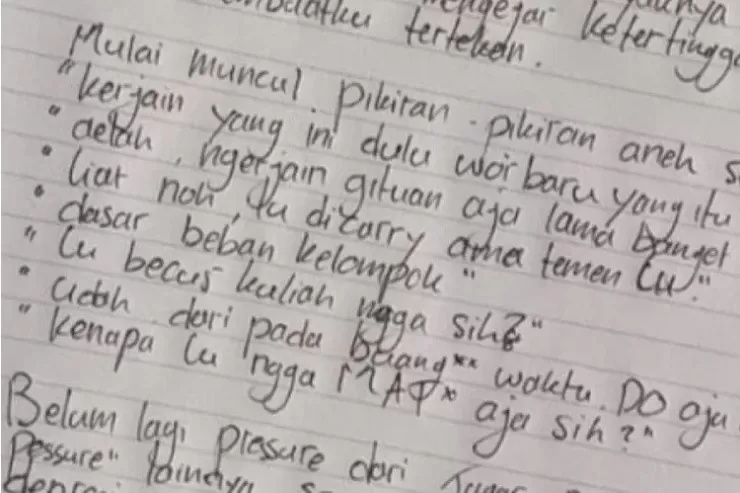 mengejar ketertingga
tertekan.
Mulai muncul pikiran-pikiran aneh s
"kerjain yang ini dulu woi baru yang itu
"aelah, ngerjain gituan aja lama banget
"liat noh, lu dicarry ama temen lu."
"dasar beban kelompok"
"lu becus kuliah ngga sih?"
"udah dari pada buang** waktu. DO aja
"kenapa lu ngga MAT* aja sih?"
Belum lagi pressure dari
Pessure" lainnya